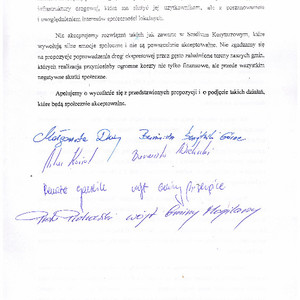 infrastruktury drogowej, która ma służyć jej użytkownikom, ale z poszanowaniem
i uwzględnieniem interesów społeczności lokalnych.
Nie akceptujemy rozwiązań takich jak zawarte w Studium Korytarzowym, które
wywołują silne emocje społeczne i nie są powszechnie akceptowalne. Nie zgadzamy się
na propozycje poprowadzenia drogi ekspresowej przez gęsto zaludnione tereny naszych gmin,
których realizacja przyniosłaby ogromne koszty nie tylko finansowe, ale przede wszystkim
negatywne skutki społeczne.
Apelujemy o wycofanie się z przedstawionych propozycji i o podjęcie takich działań,
które będą społecznie akceptowalne.
Małgorzata
wójt gminy
Piotr Piotrowski wójt Gminy Mogilany